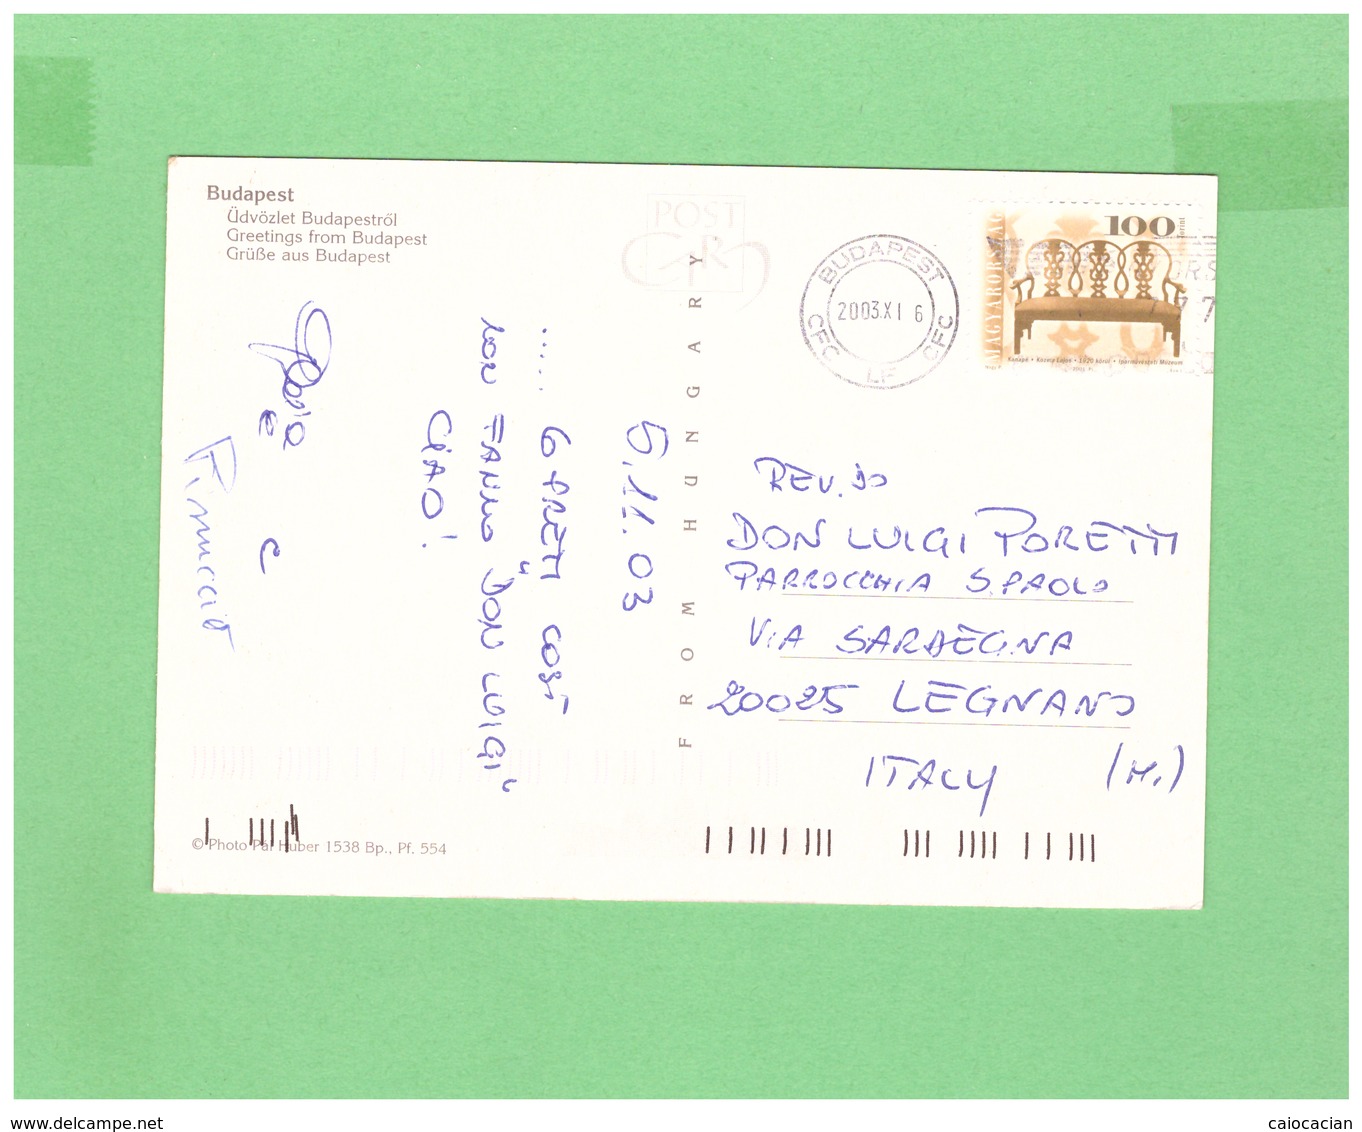 Budapest
Üdvözlet Budapestről
Greetings from Budapest
Grüße aus Budapest
POST
CARY
FROM HUNGARY
BUDAPEST
2003.XI 6
CFC
CFC
LF
100
forint
MAGYARORSZÁG
Kanapé • Kozma Lajos • 1920 körül • Iparművészeti Múzeum
5.11.03
..... 6 PRETI COSÌ
NON FANNO "DON LUIGI"
CIAO!
e
e
Pinuccio
REV.DO
DON LUIGI PORETTI
PARROCCHIA S.PAOLO
VIA SARDEGNA
20025 LEGNANO
ITALY (MI)
© Photo Pál Huber 1538 Bp., Pf. 554
www.delcampe.net
caiocacian